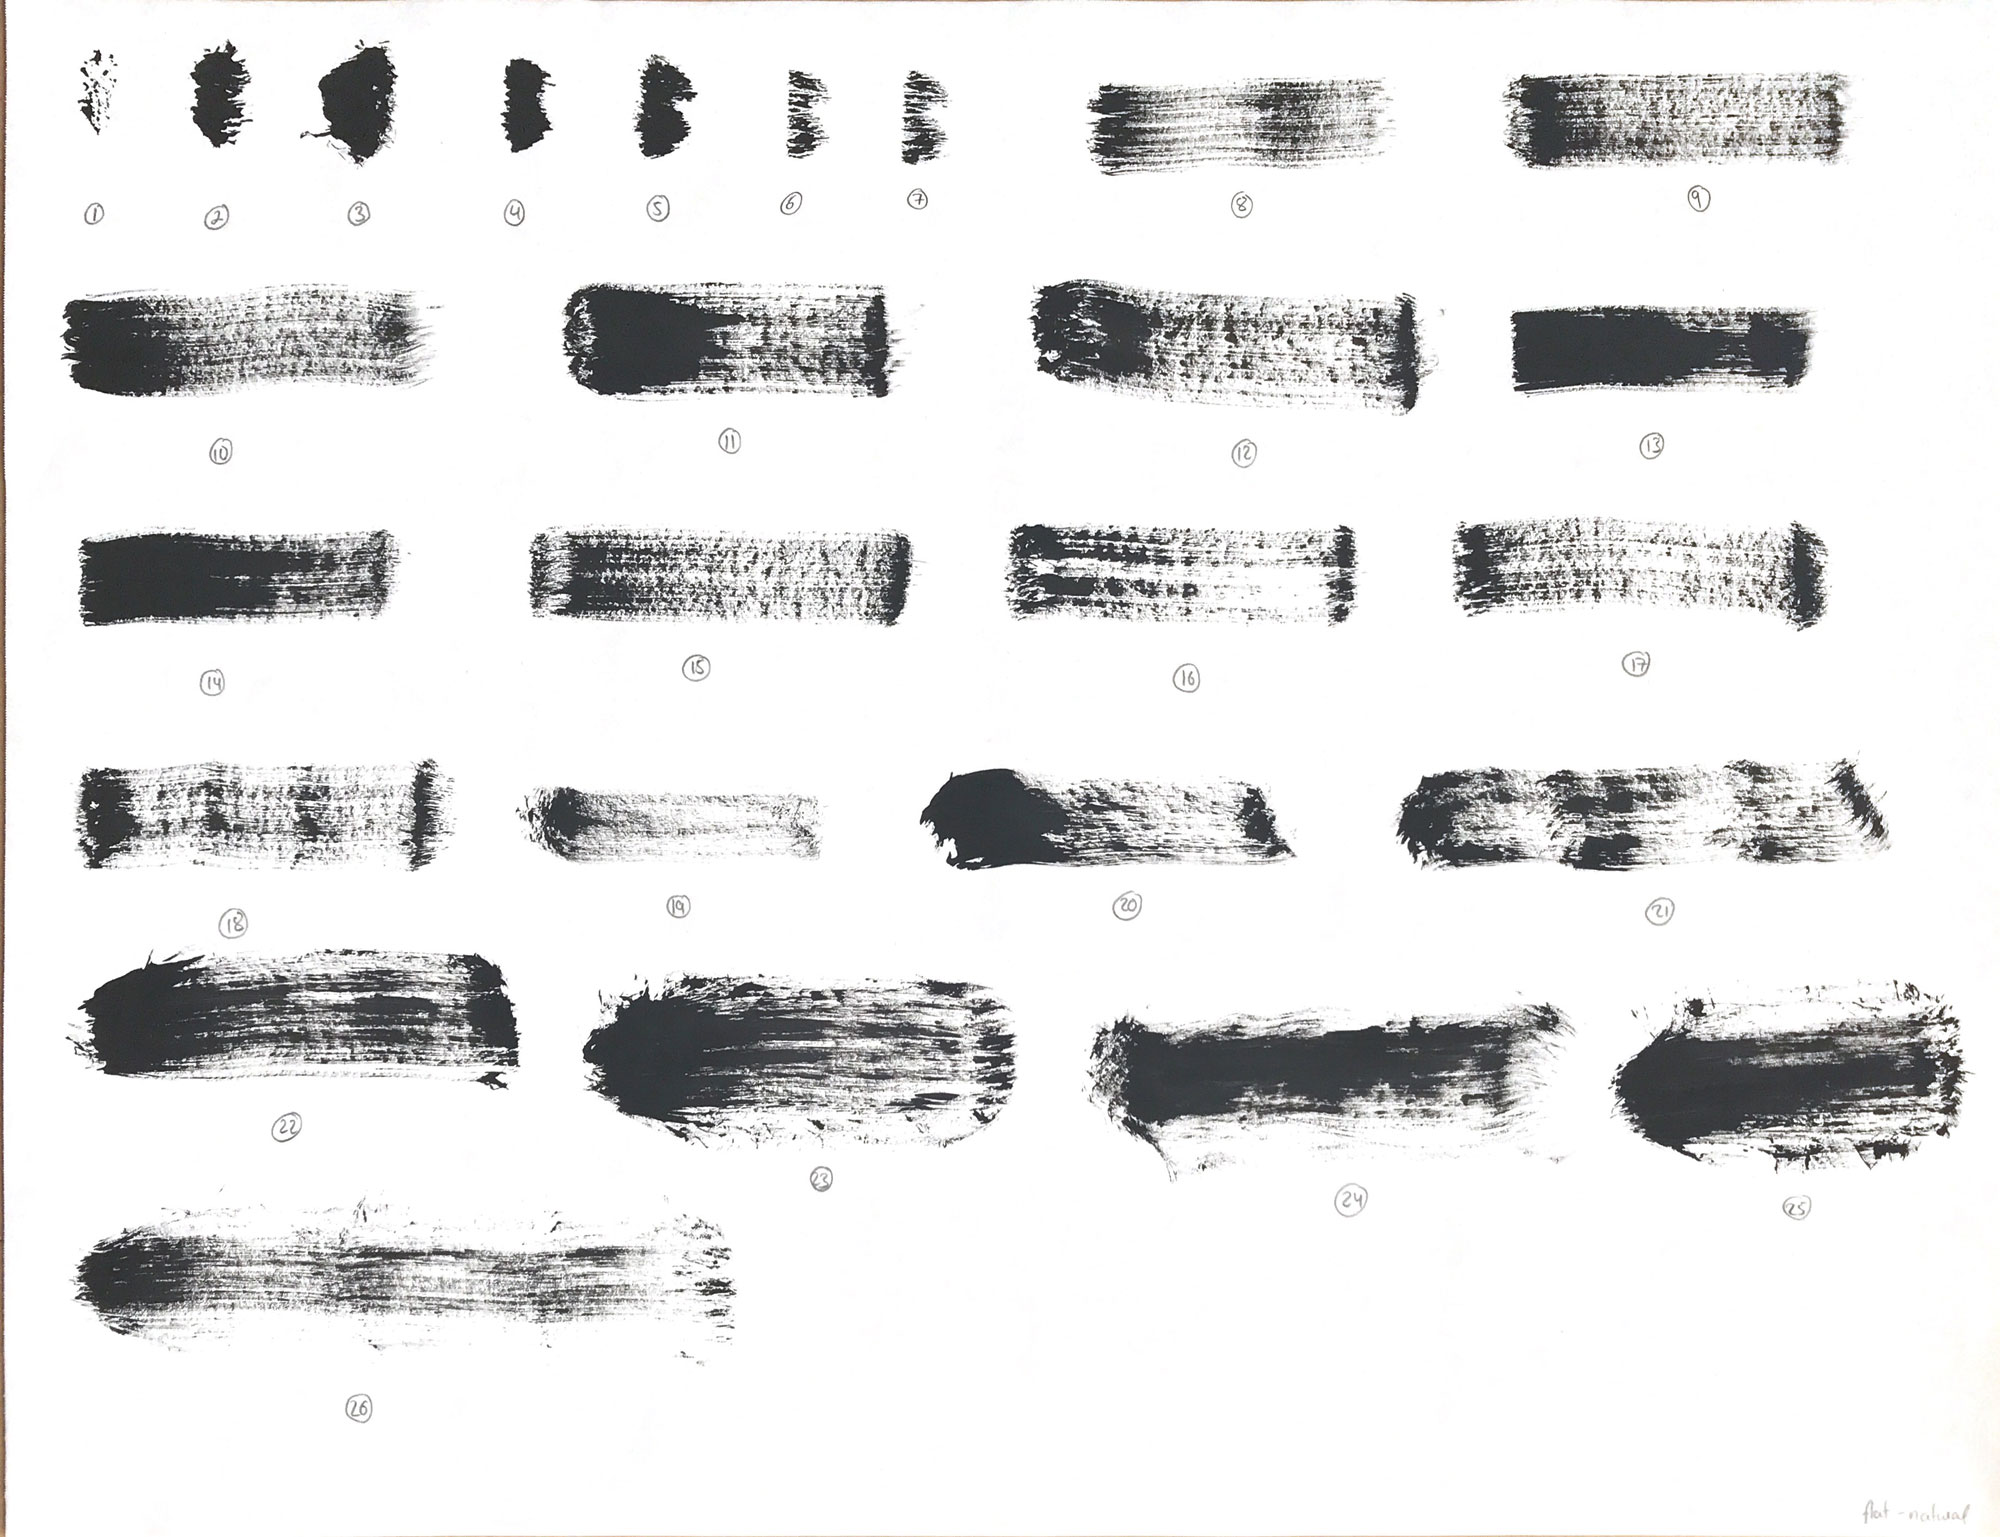 1 2 3 4 5 6 7 8 9
10 11 12 13
14 15 16 17
18 19 20 21
22 23 24 25
26
flat - natural